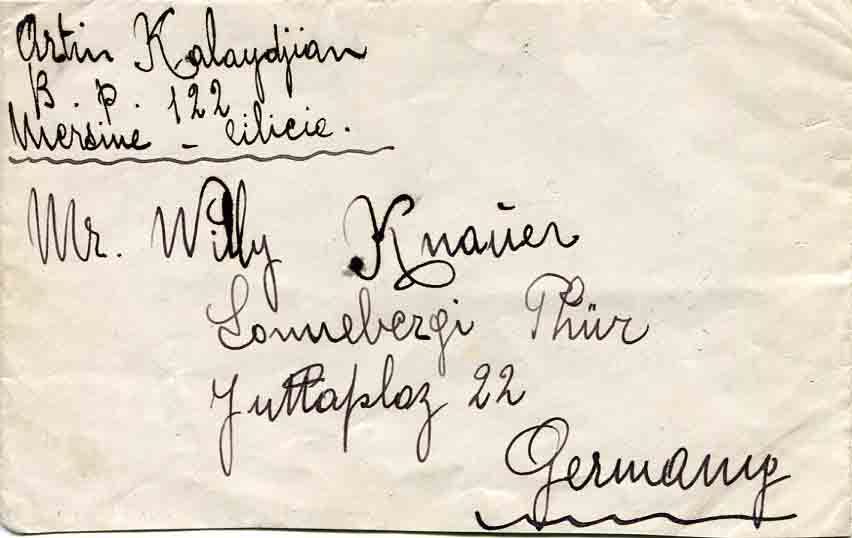 Artin Kalaydjian
B. p. 122
Mersine - Cilicie.
Mr. Willy Knaüer
Sonnebergi Thür
Juttaplaz 22
Germany